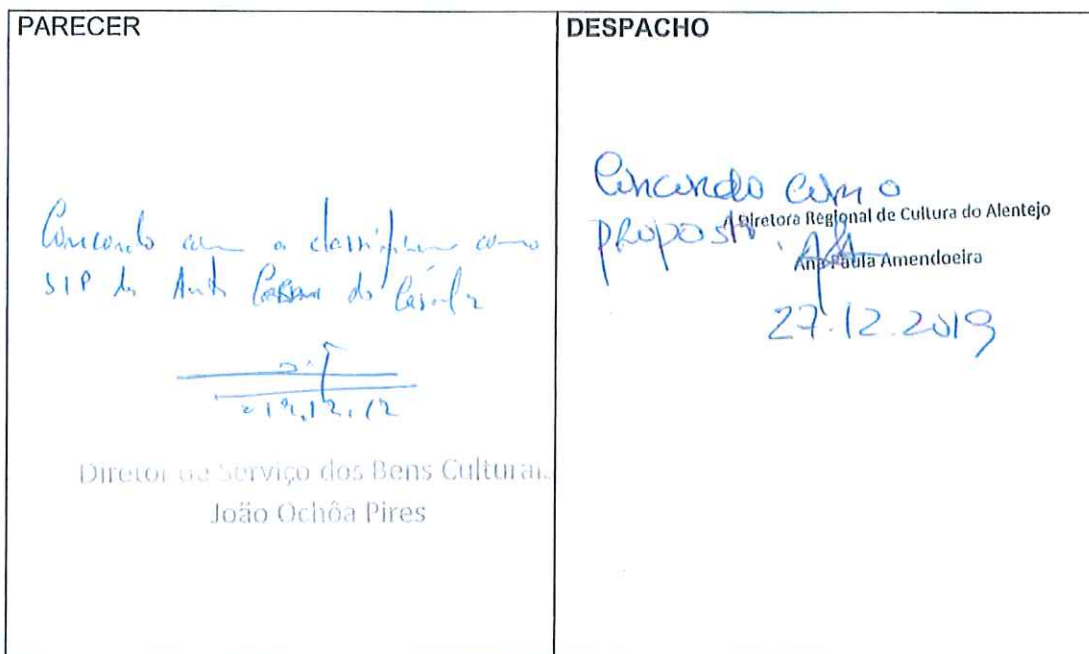 PARECER
Concordo com a classificação como
SIP da Anta
2019.12.12
Diretor de Serviço dos Bens Culturais
João Ochôa Pires
DESPACHO
Concordo com o
proposto.
A Diretora Regional de Cultura do Alentejo
Ana Paula Amendoeira
27.12.2019